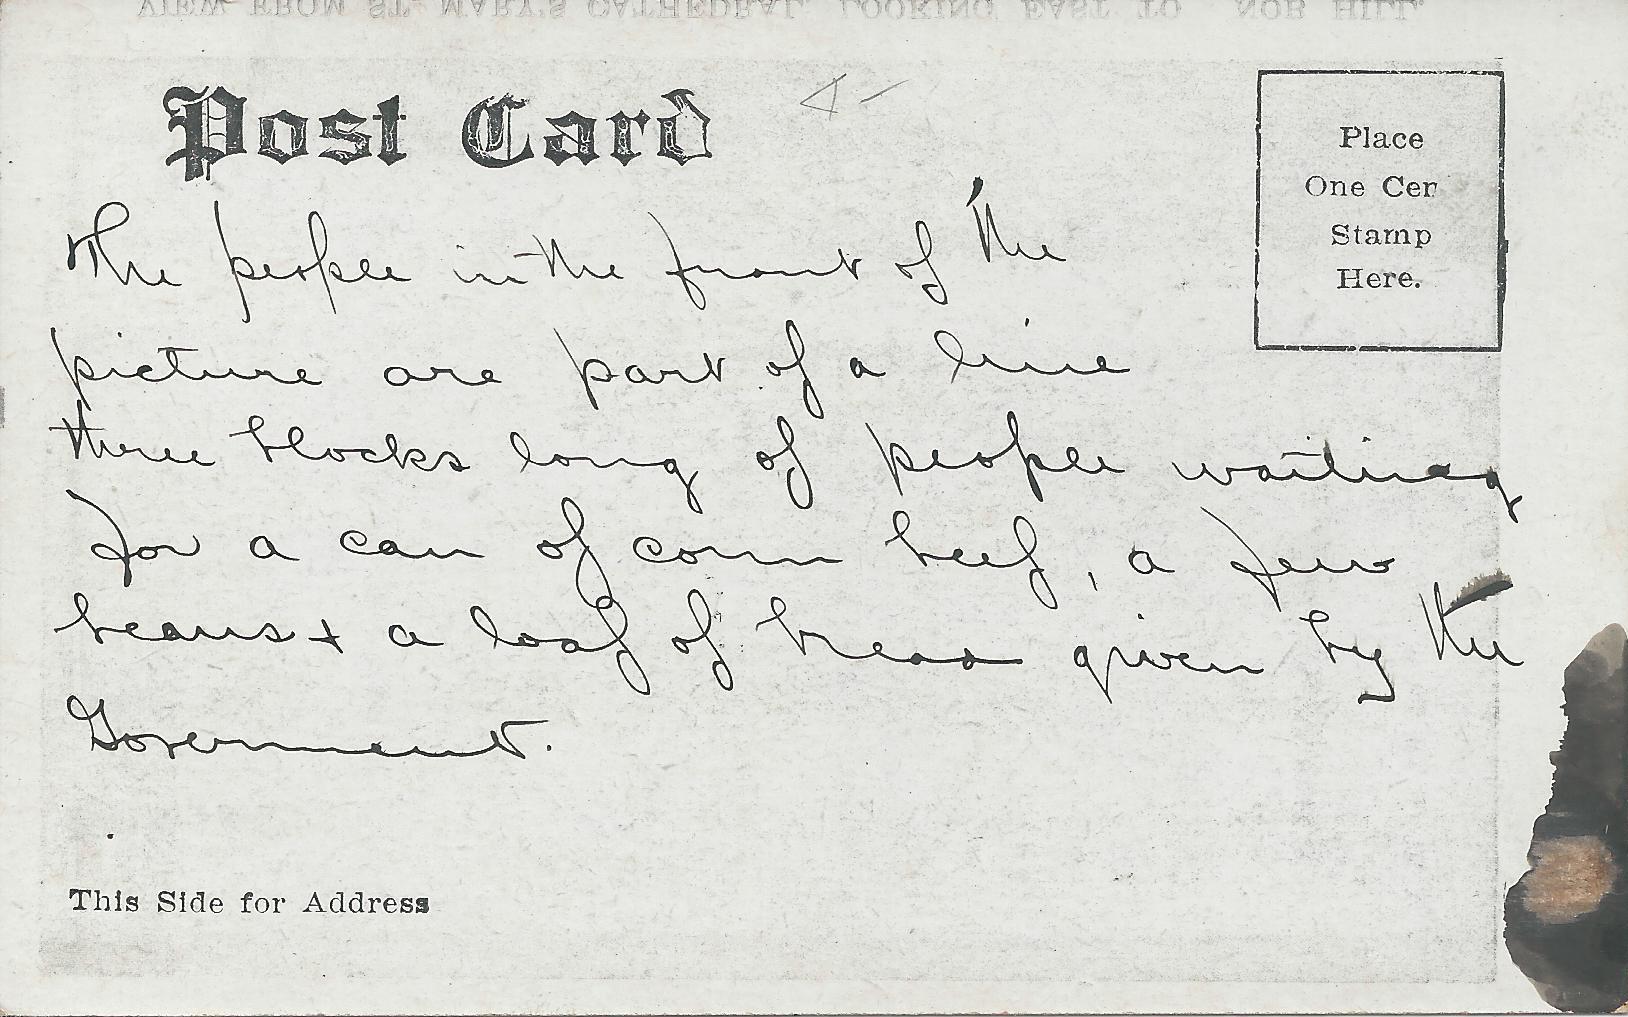 VIEW FROM ST. MARY'S CATHEDRAL, LOOKING EAST TO NOB HILL.
Post Card
4-
Place
One Cen
Stamp
Here.
The people in the front of the
picture are part of a line
three blocks long of people waiting
for a can of corn beef, a few
beans + a loaf of bread given by the
Goverment.
This Side for Address